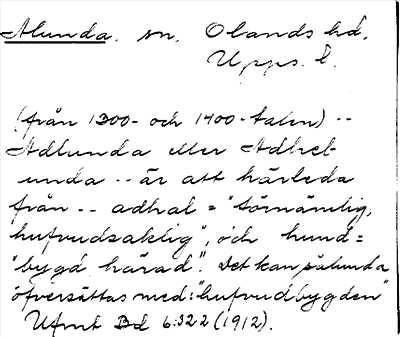 Alunda. sn. Olands hd,
Upps. l.
(från 1300- och 1400-talen) --
Adlunda eller Adhel-
unda -- är att härleda
från -- adhal = "förnämlig,
hufvudsaklig", och hund =
"bygd härad". Det kan sålunda
öfversättas med: "hufvudbygden"
Ufmt Bd 6:322 (1912).